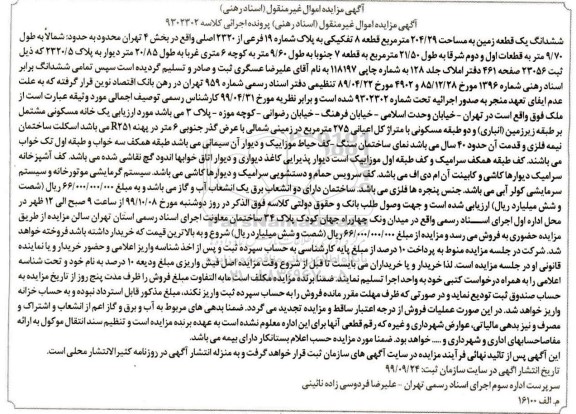 آگهی مزایده اموال غیرمنقول (اسناد رهنی)
آگهی مزایده اموال غیرمنقول (اسناد رهنی) پرونده اجرائی کلاسه ۹۳۰۲۳۰۲
ششدانگ یک قطعه زمین به مساحت ۲۰۴/۲۹ مترمربع قطعه ۸ تفکیکی به پلاک شماره ۱۹ فرعی از ۲۳۲۰ اصلی واقع در بخش ۴ تهران محدود به حدود: شمالاً به طول
۹/۷۰ متر به قطعات اول و دوم شرقاً به طول ۲۱/۵۰ مترمربع به قطعه ۷ جنوبا به طول ۹/۶۰ متر به کوچه ۶ متری غربا به طول ۲۰/۸۵ متر دیوار به پلاک ۲۳۲۰/۵ که ذیل
ثبت ۲۳۰۵۶ صفحه ۴۶۱ دفتر املاک جلد ۱۲۸ به شماره چاپی ۱۱۸۱۹۷ به نام آقای علیرضا عسگری ثبت و صادر و تسلیم گردیده است سپس تمامی ششدانگ برابر
اسناد رهنی شماره ۱۳۹۶ مورخ ۸۵/۱۲/۲۸ و ۴۹۰۲ مورخ ۸۹/۰۴/۲۲ تنظیمی دفتر اسناد رسمی شماره ۹۵۹ تهران در رهن بانک اقتصاد نوین قرار گرفته که به علت
عدم ایفای تعهد منجر به صدور اجرائیه تحت شماره ۹۳۰۲۳۰۲ شده است و برابر نظریه مورخ ۹۹/۰۴/۳۱ کارشناس رسمی توصیف اجمالی مورد وثیقه عبارت است از
ملک فوق واقع است در تهران - خیابان وحدت اسلامی - خیابان فرهنگ - خیابان رضوانی - کوچه موزه - پلاک ۳ می باشد مورد ارزیابی یک خانه مسکونی مشتمل
بر طبقه زیرزمین (انباری) و دو طبقه مسکونی با متراژ کل اعیانی ۲۷۵ مترمربع در زمینی شمالی با عرض گذر جنوبی ۶ متر در پهنه R۲۵۱ می باشد اسکلت ساختمان
نیمه فلزی و قدمت آن حدود ۴۰ سال می باشد نمای ساختمان سنگ، کف حیاط موزاییک و دیوار آن سیمانی می باشد طبقه همکف سه خواب و طبقه اول تک خواب
می باشند. کف طبقه همکف سرامیک و کف طبقه اول موزاییک است دیوار پذیرایی کاغذ دیواری و دیوار اتاق خوابها اندود گچ نقاشی شده می باشد. کف آشپزخانه
سرامیک دیوارها کاشی و کابینت آن ام دی اف می باشد. کف سرویس حمام و دستشویی سرامیک و دیوارها کاشی می باشد. سیستم گرمایشی موتورخانه و سیستم
سرمایشی کولر آبی می باشد. جنس پنجره ها فلزی می باشد. ساختمان دارای دو انشعاب برق یک انشعاب آب و گاز می باشد و به مبلغ ۶۶/۰۰۰/۰۰۰/۰۰۰ ریال (شصت
و شش میلیارد ریال) ارزیابی شده است و جهت وصول طلب بانک و حقوق دولتی کلاسه فوق الذکر در روز دوشنبه مورخ ۹۹/۱۰/۰۸ از ساعت ۹ صبح الی ۱۲ ظهر در
محل اداره اول اجرای اسناد رسمی واقع در میدان ونک چهارراه جهان کودک پلاک ۳۴ ساختمان معاونت اجرای اسناد رسمی استان تهران سالن مزایده از طریق
مزایده حضوری به فروش می رسد و مزایده از مبلغ ۶۶/۰۰۰/۰۰۰/۰۰۰ ریال (شصت و شش میلیارد ریال) شروع و به بالاترین قیمت که خریدار داشته باشد فروخته خواهد
شد. شرکت در جلسه مزایده منوط به پرداخت ۱۰ درصد از مبلغ پایه کارشناسی به حساب سپرده ثبت و پس از اخذ شناسه واریز اعلامی و حضور خریدار و یا نماینده
قانونی او در جلسه مزایده است. لذا خریدار و یا خریداران می بایست تا قبل از شروع وقت مزایده اصل فیش واریزی مبلغ ودیعه ۱۰ درصد به نام خود و تحت شناسه
اعلامی را به همراه درخواست کتبی خود به واحد اجرا تسلیم نمایند. ضمنا برنده مزایده مکلف است مابه التفاوت مبلغ فروش را ظرف مدت پنج روز از تاریخ مزایده به
حساب صندوق ثبت تودیع نماید و در صورتی که ظرف مهلت مقرر مانده فروش را به حساب سپرده ثبت واریز نکند، مبلغ مذکور قابل استرداد نبوده و به حساب خزانه
واریز خواهد شد. در این صورت عملیات فروش از درجه اعتبار ساقط و مزایده تجدید می گردد. ضمنا بدهی های مربوط به آب و برق و گاز اعم از انشعاب و اشتراک و
مصرف و نیز بدهی مالیاتی، عوارض شهرداری و غیره که رقم قطعی آنها برای این اداره معلوم نشده است به عهده برنده مزایده است و تنظیم سند انتقال موکول به ارائه
مفاصاحسابهای اداری و شهرداری و .... خواهد بود. ضمنا مورد مزایده حسب اعلام بستانکار دارای بیمه می باشد.
این آگهی پس از تائید نهائی فرآیند مزایده در سایت آگهی های سازمان ثبت قرار خواهد گرفت و به منزله انتشار آگهی در روزنامه کثیرالانتشار محلی است.
تاریخ انتشار آگهی در سایت سازمان ثبت: ۹۹/۰۹/۲۴
سرپرست اداره سوم اجرای اسناد رسمی تهران - علیرضا فردوسی زاده نائینی
م. الف ۱۶۱۰۰